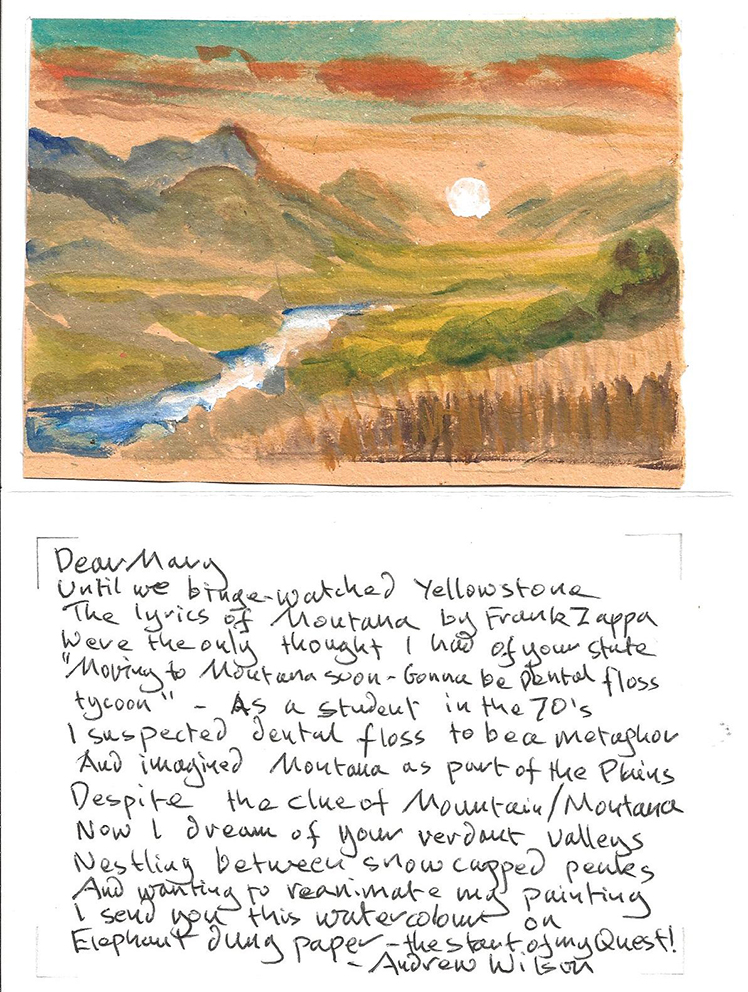 Dear Mary
Until we binge-watched Yellowstone
The lyrics of Montana by Frank Zappa
Were the only thought I had of your state
"Moving to Montana soon - Gonna be Dental floss
tycoon" - As a student in the 70's
I suspected dental floss to be a metaphor
And imagined Montana as part of the Plains
Despite the clue of Mountain/Montana
Now I dream of your verdant valleys
Nestling between snow capped peaks
And wanting to reanimate my painting
I send you this watercolour on
Elephant dung paper - the start of my Quest!
- Andrew Wilson